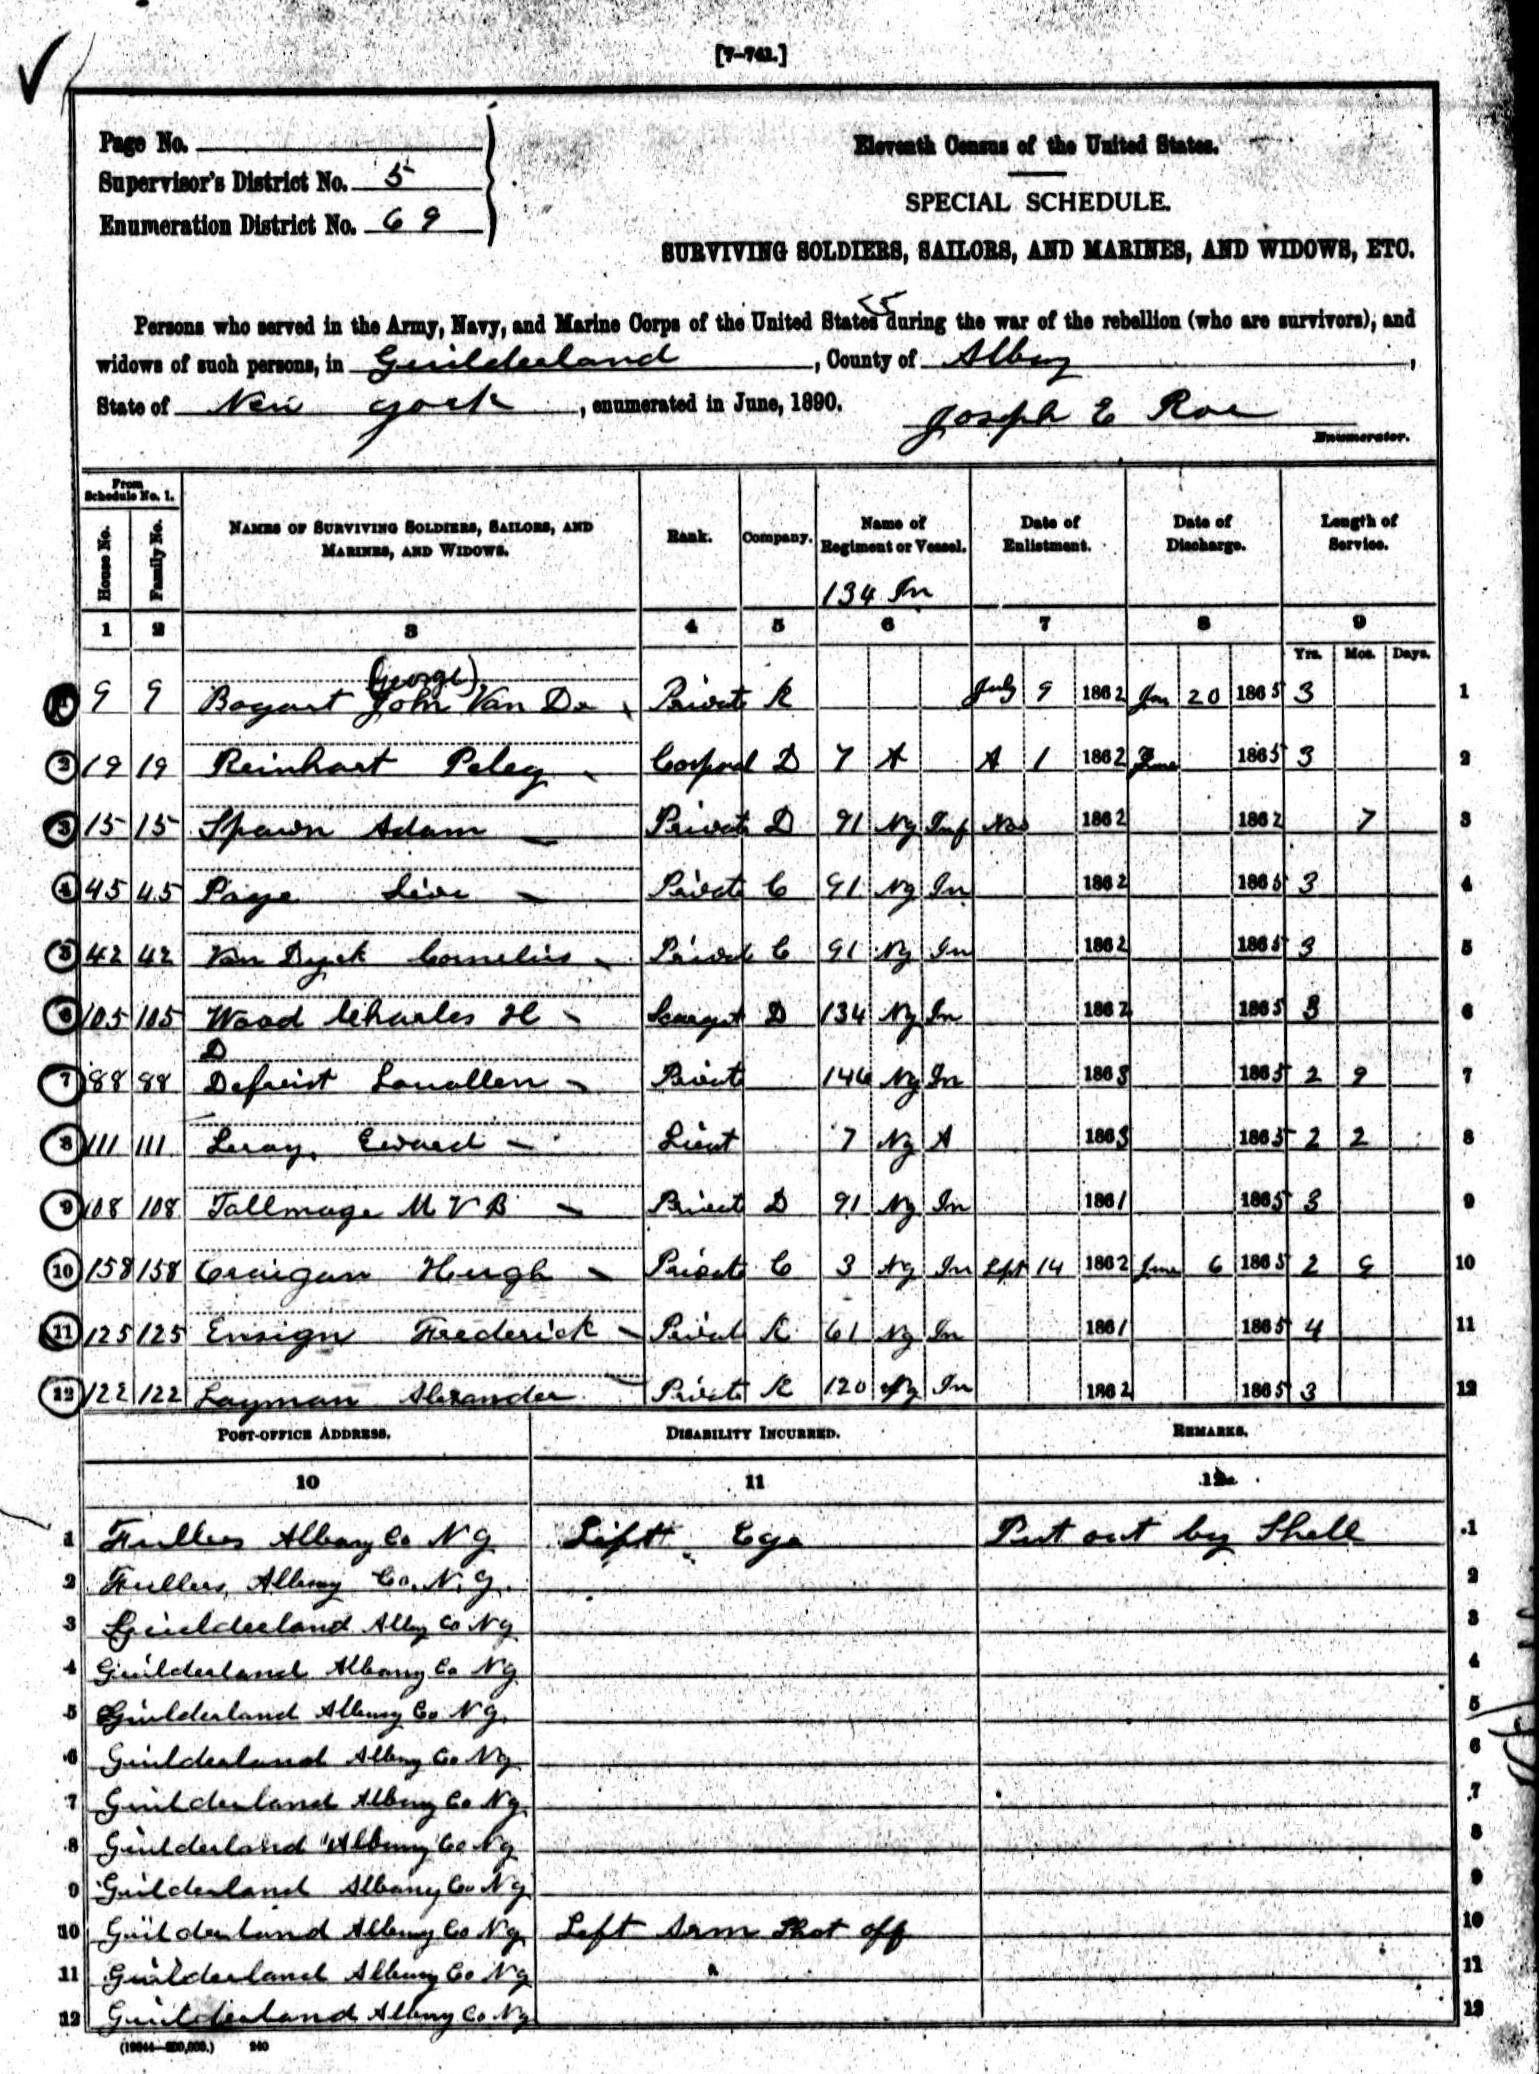 [7-741.]
Page No.
Supervisor's District No. 5
Enumeration District No. 69
Eleventh Census of the United States.
SPECIAL SCHEDULE.
SURVIVING SOLDIERS, SAILORS, AND MARINES, AND WIDOWS, ETC.
Persons who served in the Army, Navy, and Marine Corps of the United States during the war of the rebellion (who are survivors), and
widows of such persons, in Guilderland, County of Albany,
State of New York, enumerated in June, 1890.
Joseph E Roe
Enumerator.
From Schedule No. 1.
House No. Family No.
NAMES OF SURVIVING SOLDIERS, SAILORS, AND MARINES, AND WIDOWS.
Rank. Company. Name of Regiment or Vessel. Date of Enlistment. Date of Discharge. Length of Service.
134 In
1 2 3 4 5 6 7 8 9
Yrs. Mos. Days.
(George)
1 9 9 Bogart John Van De Private K July 9 1862 Jan 20 1865 3 1
2 19 19 Reinhart Peleg Corporal D 7 A A 1 1862 June 1865 3 2
3 15 15 Spawn Adam Private D 91 Ny Inf Nov 1862 1862 7 3
4 45 45 Page Private C 91 Ny In 1862 1865 3 4
5 42 42 Van Dyck Cornelius Private C 91 Ny In 1862 1865 3 5
6 105 105 Wood Charles H D 134 Ny In 1862 1865 3 6
D
7 88 88 Defreist Private Ny In 1863 1865 2 9 7
8 111 111 Leroy, Edward Lieut 7 Ny A 1863 1865 2 2 8
9 108 108 Tallmage M V B Private D 91 Ny In 1861 1865 3 9
10 158 158 Craigan Hugh Private C 3 Ny In Sept 14 1862 June 6 1865 2 9 10
11 125 125 Ensign Frederick Private K 61 Ny In 1861 1865 4 11
12 122 122 Layman Alexander Private K 120 Ny In 1862 1865 3 12
POST-OFFICE ADDRESS. DISABILITY INCURRED. REMARKS.
10 11 12
1 Fullers Albany Co N Y Left Eye Put out by Shell 1
2 Fullers, Albany Co. N. Y. 2
3 Guilderland Albany Co N Y 3
4 Guilderland Albany Co N Y 4
5 Guilderland Albany Co N Y. 5
6 Guilderland Albany Co Ny 6
7 Guilderland Albany Co Ny 7
8 Guilderland Albany Co Ny 8
9 Guilderland Albany Co N Y 9
10 Guilderland Albany Co N Y Left Arm Shot off 10
11 Guilderland Albany Co N Y 11
12 Guilderland Albany Co Ny 12